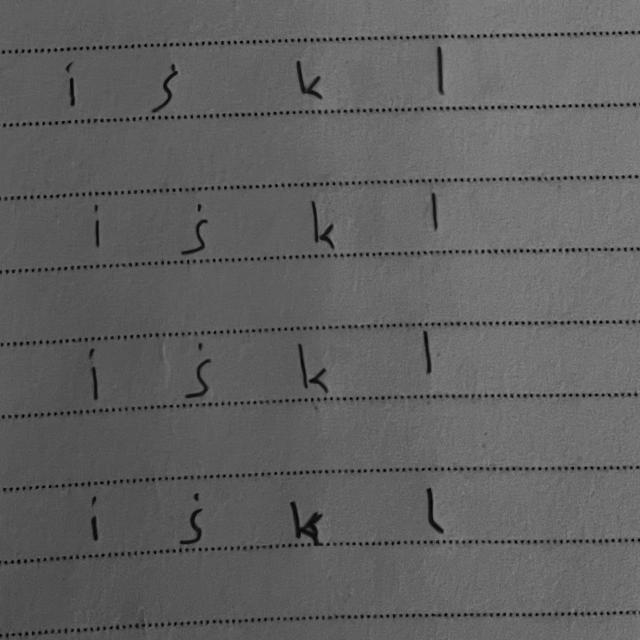 i j k l
i j k l
i j k l
i j k l